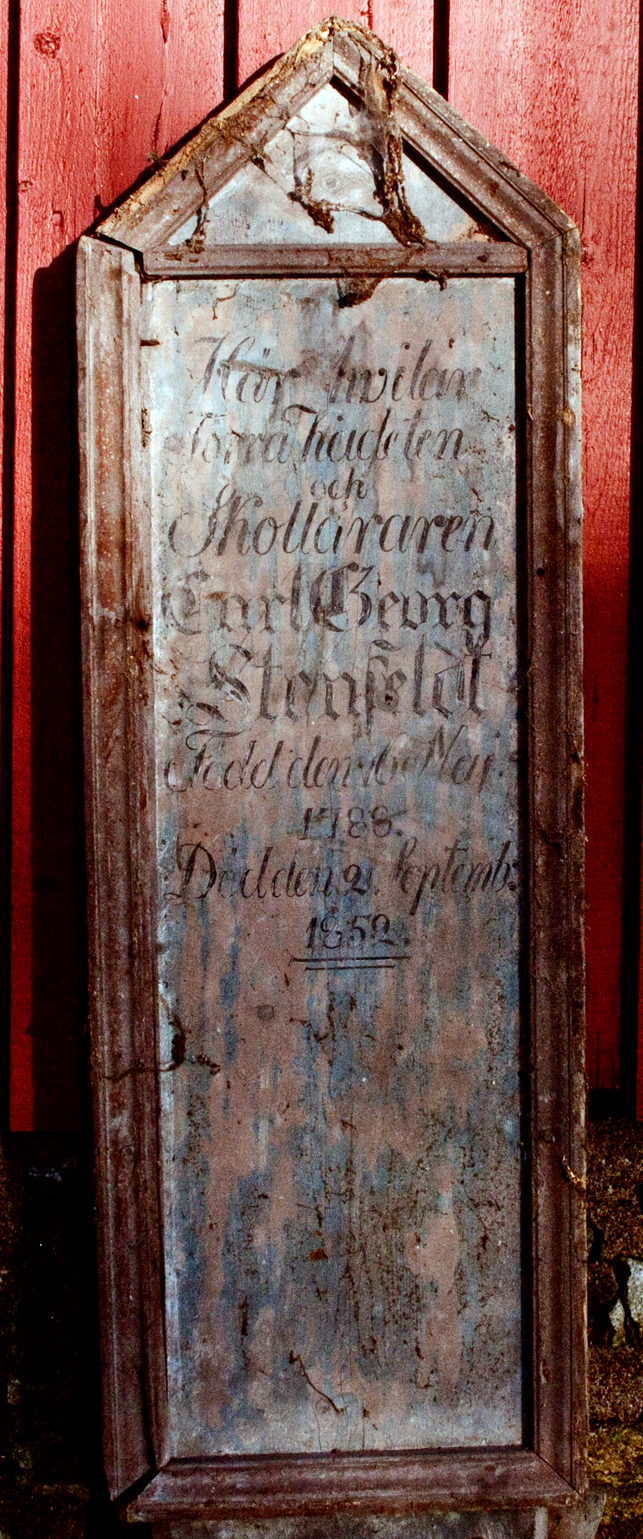 Här hvilar
förra Kadeten
och
Skolläraren
Carl Georg
Stenfeldt
Född den 16 Maj
1788.
Död den 21 Septemb:
1852.